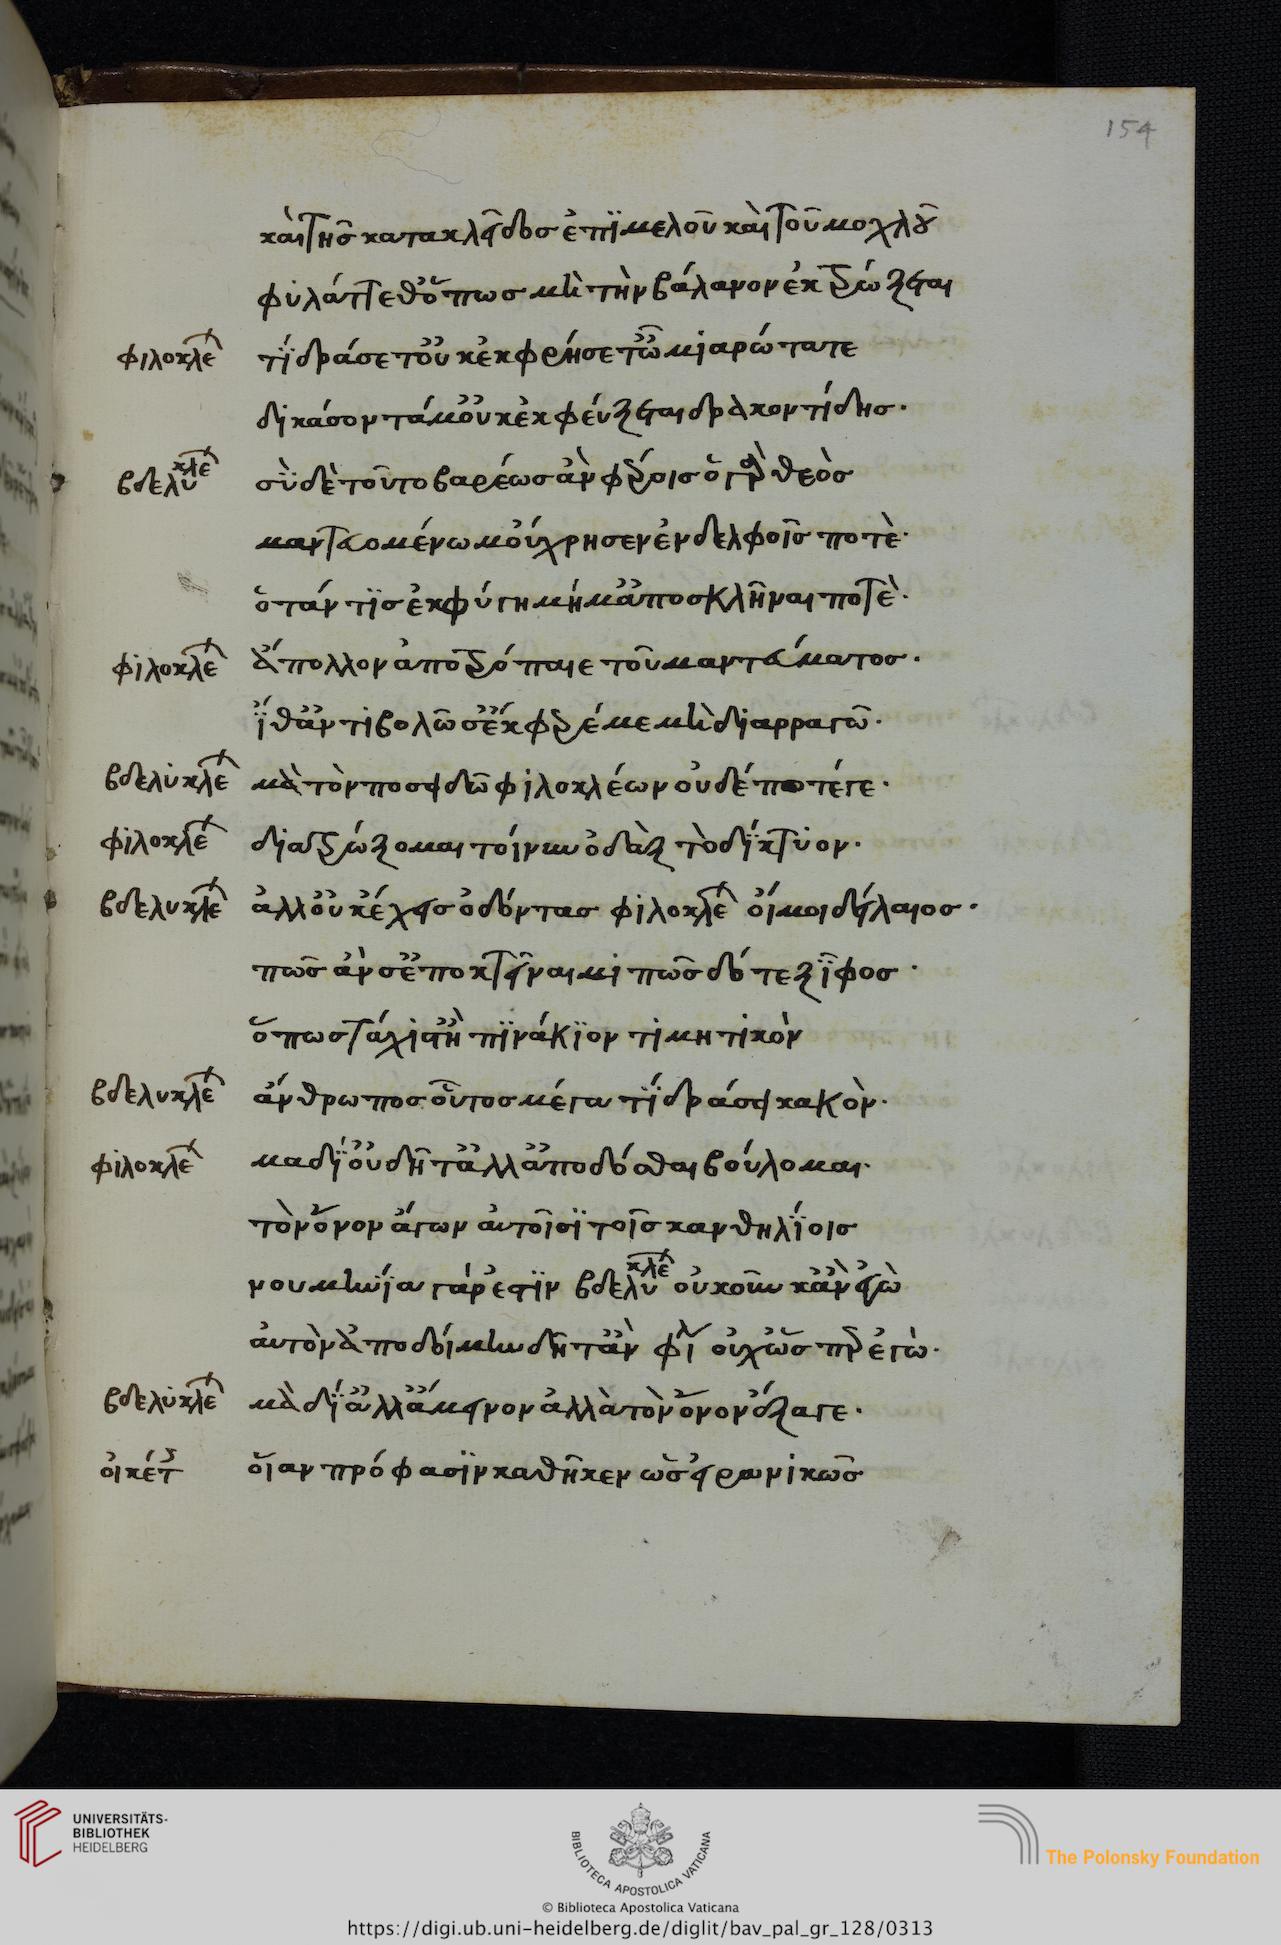 154
καὶ τῆς κατακλεῖδος ἐπιμελοῦ καὶ τοῦ μοχλοῦ
φύλαττέ θ' ὅπως μὴ τὴν βάλανον ἐκτρώξεται
φιλοκλέ τί δράσετ' οὐκ ἐκφρήσετ' ὦ μιαρώτατε
δικάσοντά μ' οὐκ ἐκφεύξεται δρακοντίδης·
βδελυκλέ σὺ δὲ τοῦτο βαρέως ἂν φέροις ὁ γὰρ θεὸς
μαντευομένω μοὔχρησεν ἐν δελφοῖς ποτὲ·
ὅταν τις ἐκφύγη μή μ' ἀποσκλῆναι ποτὲ·
φιλοκλέ ἄπολλον ἀποτρόπαιε τοῦ μαντεύματος·
ἴθ' ἀντιβολῶ σ' ἔκφρέ με μὴ διαρραγῶ·
βδελυκλέ μὰ τὸν ποσειδῶ φιλοκλέων οὐδέποτέ γε·
φιλοκλέ διατρώξομαι τοίνυν ὀδὰξ τὸ δίκτυον·
βδελυκλέ ἀλλ' οὐκ ἔχεις ὀδόντας φιλοκλέ οἴμοι δείλαιος·
πῶς ἄν σ' ἐποκτείναιμι πῶς δότε ξίφος·
ὅπως τάχιστ' ἢ πινάκιον τιμητικὸν
βδελυκλέ ἄνθρωπος οὗτος μέγα τί δράσει κακὸν·
φιλοκλέ μα δί' οὐ δῆτ' ἀλλ' ἀποδόσθαι βούλομαι·
τὸν ὄνον ἄγων αὐτοῖσι τοῖς κανθηλίοις
νουμηνία γάρ ἐστιν βδελυκλέ οὐκοῦν κἂν ἐγὼ
αὐτὸν ἀποδοίμην δῆτ' ἂν φιλ οὐχ ὥσπερ ἐγώ·
βδελυκλέ μὰ δί' ἀλλ' ἄμεινον ἀλλὰ τὸν ὄνον ἔξαγε·
οἰκέτ οἵαν πρόφασιν καθῆκεν ὡς εἰρωνικῶς
UNIVERSITÄTS-
BIBLIOTHEK
HEIDELBERG
BIBLIOTECA APOSTOLICA VATICANA
The Polonsky Foundation
© Biblioteca Apostolica Vaticana
https://digi.ub.uni-heidelberg.de/diglit/bav_pal_gr_128/0313